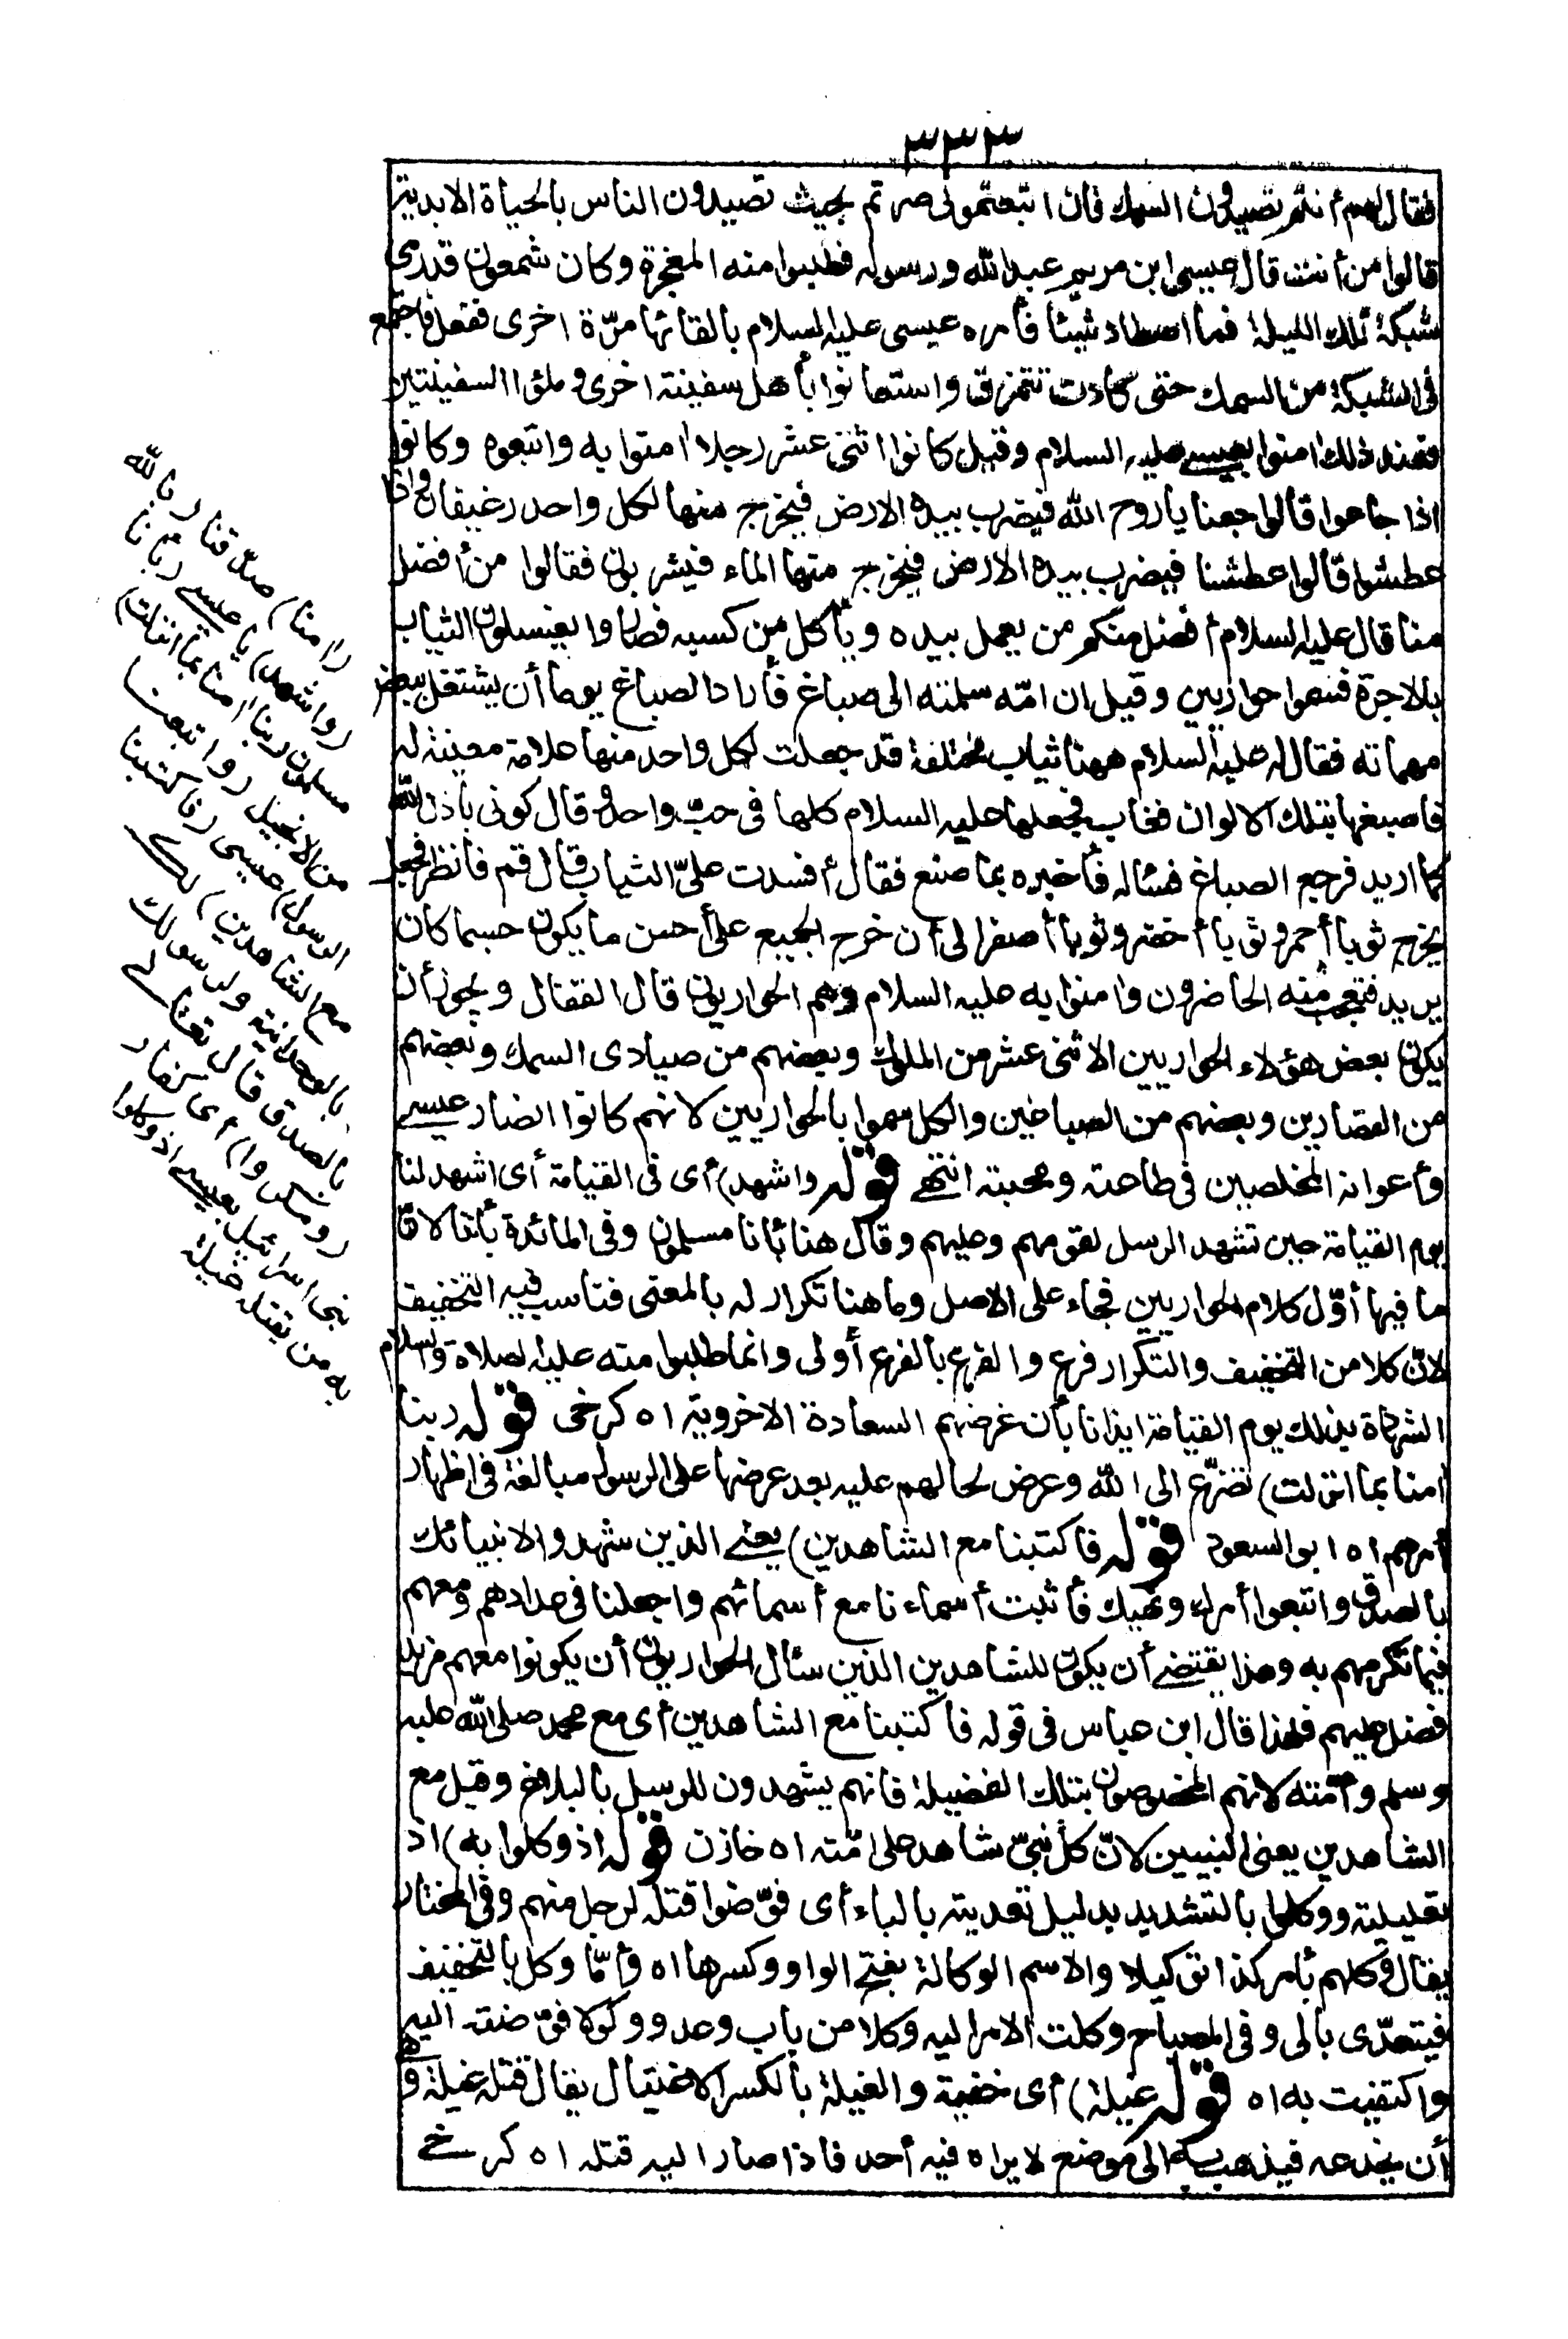 ٣٣٣
فقال لهم أنتم تصيدون السمك فان اتبعتمونى صرتم بحيث تصيدون الناس بالحياة الابدية
قالوا من أنت قال عيسى ابن مريم عبد الله ورسوله فطلبوا منه المعجزة وكان شمعون قد رمى
شبكة تلك الليلة فما اصطاد شيئا فأمره عيسى عليه السلام بالقائها مرّة اخرى ففعل فاجتمع
فى الشبكة من السمك حتى كادت تتمزق واستعانوا بأهل سفينة اخرى وملؤا السفينتين
فعند ذلك امنوا بعيسى عليه السلام وقيل كانوا اثنى عشر رجلا امنوا به واتبعوه وكانوا
اذا جاعوا قالوا جعنا ياروح الله فيضرب بيده الارض فيخرج منها لكل واحد رغيفان واذا
عطشوا قالوا عطشنا فيضرب بيده الارض فيخرج منها الماء فيشربون فقالوا من أفضل
منا قال عليه السلام أفضل منكم من يعمل بيده ويأكل من كسبه فصاروا يغسلون الثياب
بالاجرة فسموا حواريين وقيل ان امّه سلمته الى صباغ فأراد الصباغ يوما أن يشتغل ببعض
مهماته فقال له عليه السلام ههنا ثياب مختلفة قد جعلت لكل واحد منها علامة معينة له
فاصبغها بتلك الالوان فغاب فجعلها عليه السلام كلها فى حبّ واحد وقال كونى باذن الله
كما اريد فرجع الصباغ فسأله فأخبره بما صنع فقال أفسدت علىّ الثياب قال قم فانظر فجعل
يخرج ثوبا أحمر وثوبا أخضر وثوبا أصفر الى أن خرج الجميع على أحسن ما يكون حسبما كان
يريد فتعجب منه الحاضرون وامنوا به عليه السلام وهم الحواريون قال القفال ويجوز أن
يكون بعض هؤلاء الحواريين الاثنى عشر من الملوك وبعضهم من صيادى السمك وبعضهم
من القصارين وبعضهم من الصباغين والكل سموا بالحواريين لانهم كانوا انصار عيسى
وأعوانه المخلصين فى طاعته ومحبته انتهى قوله واشهد) أى فى القيامة أى اشهد لنا
يوم القيامة حين تشهد الرسل لقومهم وعليهم وقال هنا بأنا مسلمون وفى المائدة بأننا لانّ
ما فيها أوّل كلام الحواريين فجاء على الاصل وما هنا تكرار له بالمعنى فناسب فيه التخفيف
لانّ كلا من التخفيف والتكرار فرع والفرع بالفرع أولى وانما طلبوا منه عليه الصلاة والسلام
الشهادة بذلك يوم القيامة ايذانا بأن غرضهم السعادة الاخروية اه كرخى قوله ربنا
امنا بما انزلت) تضرّع الى الله وعرض لحالهم عليه بعد عرضها على الرسول مبالغة فى اظهار
أمرهم اه ابو السعود قوله فاكتبنا مع الشاهدين) يعنى الذين شهدوا لانبيائك
بالصدق واتبعوا أمرك ونهيك فأثبت أسماءنا مع أسمائهم واجعلنا فى عدادهم ومعهم
فيما تكرمهم به وهذا يقتضى أن يكون للشاهدين الذين سأل الحواريون أن يكونوا معهم مزيد
فضل عليهم فلهذا قال ابن عباس فى قوله فاكتبنا مع الشاهدين أى مع محمد صلى الله عليه
وسلم وأمّته لانهم المخصوصون بتلك الفضيلة فانهم يشهدون للرسل بالبلاغ وقيل مع
الشاهدين يعنى النبيين لانّ كل نبىّ شاهد على امّته اه خازن قوله اذ وكلوا به) اذ
تعليلية ووكلوا بالتشديد بدليل تعديته بالباء أى فوّضوا قتله لرجل منهم وفى المختار
يقال وكلهم بأمر كذا توكيلا والاسم الوكالة بفتح الواو وكسرها اه وأمّا وكل بالتخفيف
فيتعدّى بالى وفى المصباح وكلت الامر اليه وكلا من باب وعد ووكولا فوّضته اليه
واكتفيت به اه قوله غيلة) أى خفية والغيلة بالكسر الاغتيال يقال قتله غيلة وهى
أن يخدعه فيذهب به الى موضع لا يراه فيه أحد فاذا صار اليه قتله اه كرخى
(امنا) صدّقنا (بالله
واشهد) يا عيسى (بأنا
مسلمون ربنا امنا بما انزلت)
من الانجيل (واتبعنا
الرسول) عيسى (فاكتبنا
مع الشاهدين) لك
بالوحدانية ولرسولك
بالصدق قال تعالى
(ومكروا) أى كفار
بنى اسرائيل بعيسى اذ وكلوا
به من يقتله غيلة